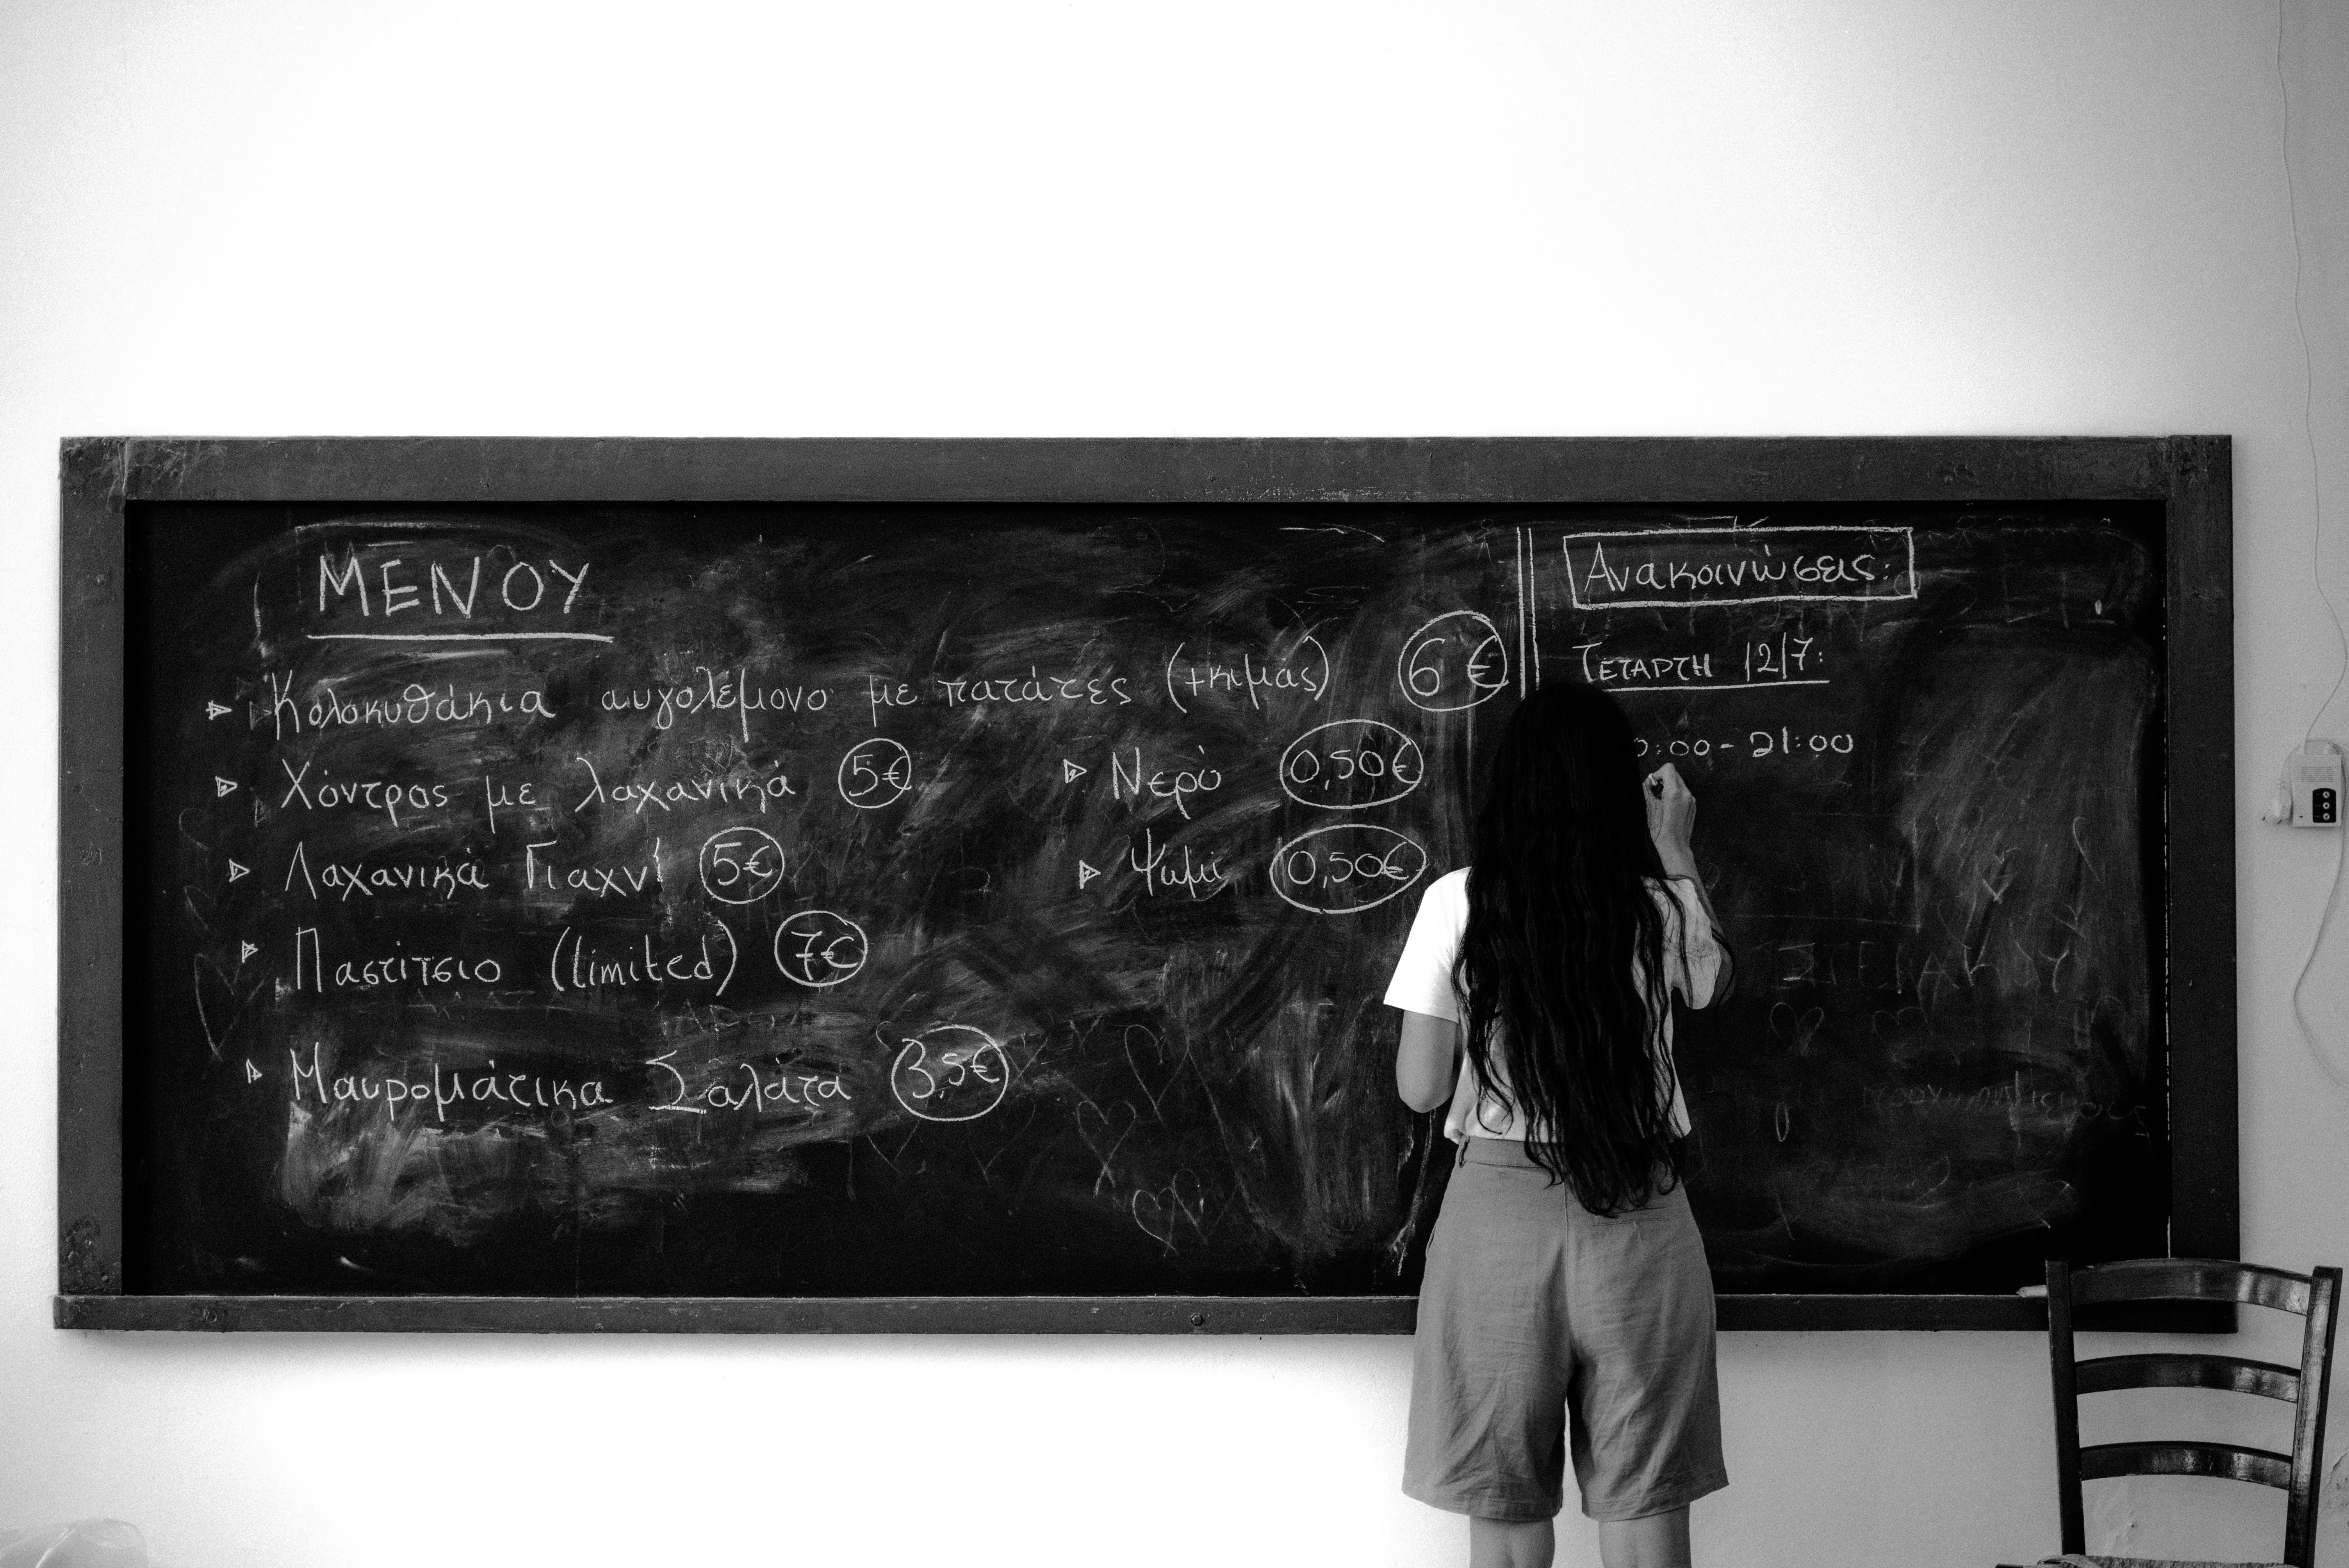 ΜΕΝΟΥ
Κολοκυθάκια αυγολέμονο με πατάτες (+κιμάς) 6 €
Χόντρος με λαχανικά 5€
Λαχανικά Γιαχνί 5€
Παστίτσιο (limited) 7€
Μαυρομάτικα Σαλάτα 3,5€
Νερό 0,50€
Ψωμί 0,50€
Ανακοινώσεις:
ΤΕΤΑΡΤΗ 12/7:
:00 - 21:00